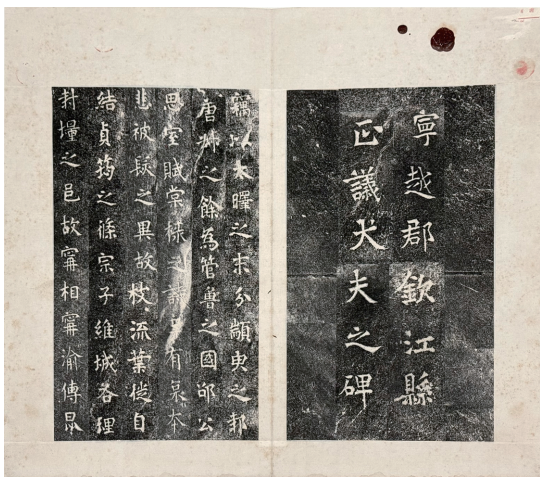 寧越郡欽江縣
正議大夫之碑
竊以太曎之末分顓臾之邦
唐叔之餘為管魯之國邵公
思室賦棠棣之詩有泉本
被之異故枝流葉從自
結貞筠之條宗子維城各理
封壃之邑故甯相甯渝傳昆